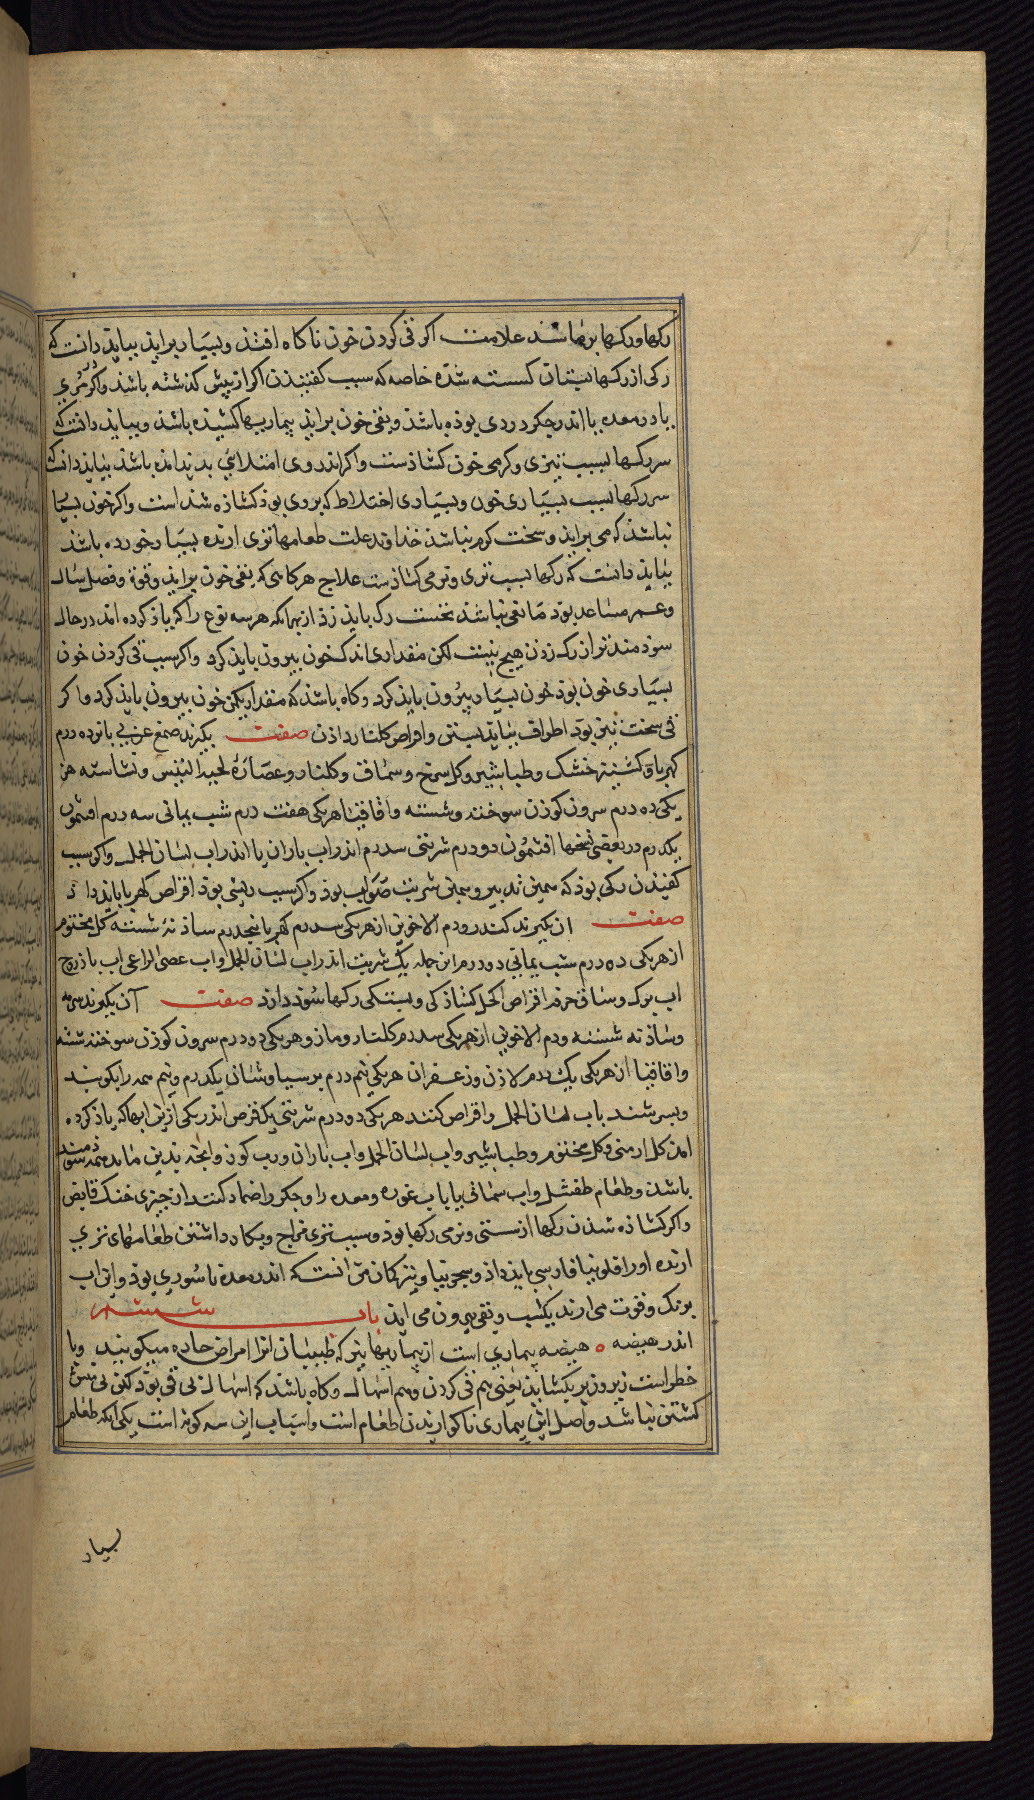 رکها ورکها برهاشند علامت اکر قی کردن خون ناکاه افتد و بسیار براید بباید دانست که
رکی از رکها نیتان کسسته شده خاصه که سبب کفتیدن اکر از پیش کذشته باشد و اکر مری
یا در معده یا اندر جکر دردی بوذه باشد و بقی خون براید بیماریها کشیذه باشد و بباید دانست که
سر رکها بسبب تیزی و کرمی خون کشاذست و اکر اندر وی امتلایی بدید امده باشد بباید دانست که
سر رکها بسبب بسیاری خون و بسیاری اختلاط که بروی بوذ کشاذه شد است و اکر خون بسیار
نباشذ که می براید و سخت کرم نباشذ خذاوند علت طعامهاء تری ارنده بسیار خورده باشد
بباید دانست که رکها بسبب تری و نرمی کشاذست علاج هرکاهی که بقی خون براید و قوة و فصل سال
و عمر مساعد بوذ مانعی نباشذ نخست رک باید زذ از بهر انکه هر سه نوع را که یاذ کرده امد در حال
سوذمندتر از رک زدن هیچ نیست لکن مقداری اندک خون بیرون باید کرد و اکر سبب قی کردن خون
بسیاری خون بوذ خون بسیار بیرون باید کرد و کاه باشذ که مقدار یکمن خون بیرون باید کرد و اکر
قی سخت نیتی بوذ اطراف بباید بستن و اقراص کلنار داذن صفت بکیرند صمغ عربی پانزده درم
کهربا و کشنیز خشک و طباشیر و کل سرخ و سماق و کلنار و عصاره لحیة التیس و نشاسته هر
یکی ده درم سرون کوزن سوخته و شسته و اقاقیا هر یکی هفت درم شب یمانی سه درم افیون
یکدرم در بعضی نسخها افتمون دو درم شربتی سدرم اندر اب باران یا اندر اب لسان الحمل و اکر سبب
کفتیدن رکی بوذ که همین تدبیر و همین شربت صواب بوذ و اکر سبب ریشی بوذ اقراص کهربا باید داذ
صفت ان بکیرند کندر و دم الاخوین از هر یکی سدرم کهربا پنجدرم ساذنه شسته کل مختوم
از هر یکی ده درم شب یمانی دو درم از جمله یک شربت اندر اب لسان الحمل و اب عصی الراعی اب باذروج
اب برک و ساق خرفه اقراص الحل کشاذکی و بستکی رکها سوذ دارد صفت آن بکیرند سرمه
و ساذنه شسته و دم الاخوین از هر یکی سدرم کلنار و مازو هر یکی دو درم سرون کوزن سوخته شسته
و اقاقیا از هر یکی یک درم لاذن و زعفران هر یکی نیم درم برسیاوشان یکدرم و نیم همه را بکوبند
و بسرشند باب لسان الحمل و اقراص کنند هر یکی دو درم شربتی یک قرص اندر یکی ازین ابها که یاذ کرده
امد کل ارمنی و کل مختوم و طباشیر و اب لسان الحمل و اب باران و رب کوز و انجه بدین ماند همه سوذمند
باشذ و طعام طفشل و اب سماق یا باب غوره و معده را و جکر را ضماد کنند از چیزی خنک قابض
و اکر کشاذه شدن رکها از سستی و نرمی رکها بوذ و سبب تری مزاج و بکار داشتن طعامهاء تری
ارنده اورا فلونیا فارسی باید داذ و سجزینیا و نیز کمان من انست که اندر معده ناسوری بوذ و این اب
برنک و قوت می ارند یکشب و بقی بیرون می اید باب ششم
اندر هیضه ه هیضه بیماری است از بیماریهایی که طبیبان انرا امراض حاده میکویند و با
خطر است زیر و زبر بکشاید یعنی هم قی کردن و هم اسهال و کاه باشذ که اسهال بی قی بوذ لکن بی منش
کشتن نباشد و اصل این بیماری ناکواریدن طعام است و اسباب این سه کونه است یکی انکه طعام
بسیار